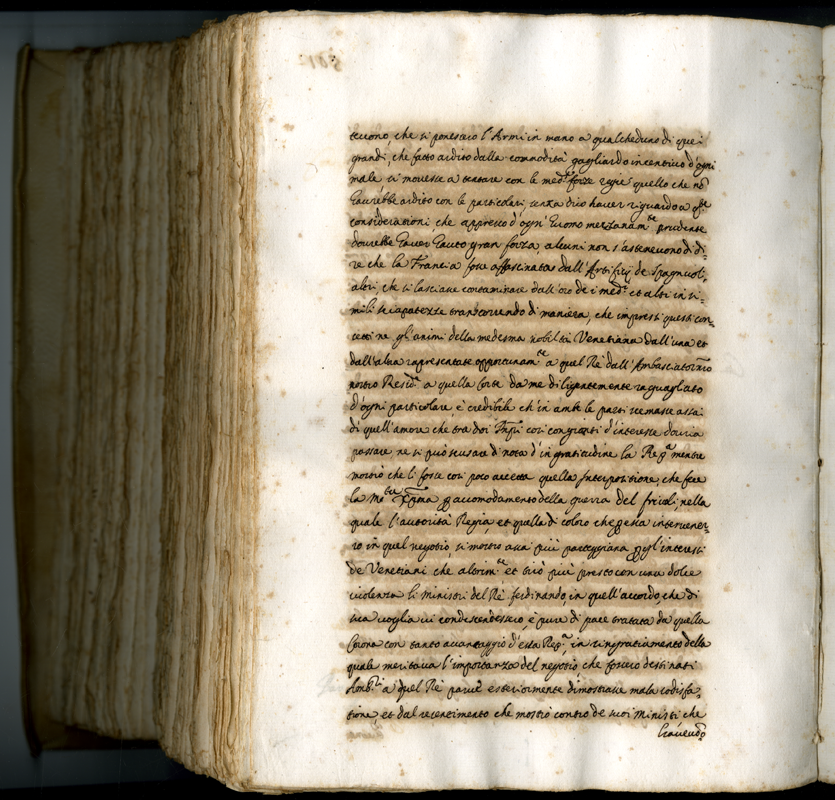 tessono, che si ponessero l'Armi in mano a qualcheduno di quei
grandi, che fatto ardito dalla commodità gagliardo incentivo d'ogni
male si movesse a tentare con le med.me forze regie quello che nõ
havrebbe ardito con le particolari, senza dico haver riguardo a q.ste
considerationi che appresso d'ogni huomo mezzanam.te prudente
dovrebbe haver hauto gran forza, alcuni non s'astenevono di di=
re che la Francia fosse affascinata dall'Artificij de Spagnuoli,
altri, che si lasciasse contaminare dall'oro dei med.mi et altri in si=
mili sciapatezze transcorrendo di maniera, che impressi questi con=
cetti ne gl'animi della medesma nobiltà Venetiana dall'una et
dall'altra rapresentate opportunam.te a quel Rè dall'Ambasciator m̃io
nostro Resid.te a quella Corte da me diligentemente raguagliato
d'ogni particolare, è credibile ch'in ambe le parti remasse assai
di quell'amore che tra doi Prñpi così congionti d'interesse dovria
passare, ne si può scusare di nota d'ingratitudine la Rep.ca mentre
mostrò che li fosse così poco accetta quella Interpositione, che fece
la M.tà Xp̃ma p accomodamento della guerra del friuli nella
quale l'autorità Regia, et quella di coloro che p essa intervener=
ro in quel negotio, si mostrò assai più parteggiana p gl'interessi
de Venetiani che altrim.te et tirò più presto con una dolce
violenza li Ministri del Rè ferdinando in quell'accordo, che di
sua voglia vi condescendessero, e pure di pace trattata da quella
Corona con tanto avantaggio d'essa Rep.ca, in ringratiamento della
quale meritava l'importanza del negotio, che fossero destinati
Amb.ri a quel Rè parve esteriormente dimostrasse mala sodisfa=
tione, et dal resentimento che mostrò contro de suoi Ministri che
havendo